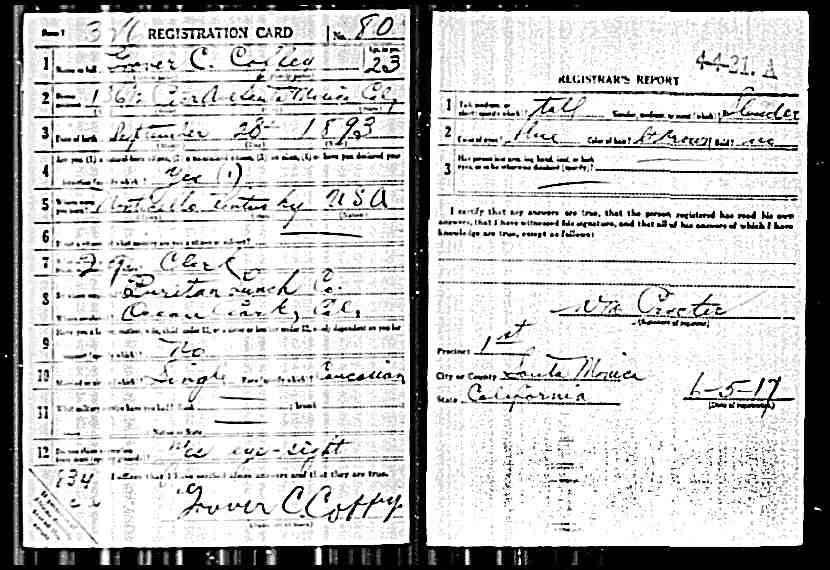 Form 1 REGISTRATION CARD No. 80
1 Name in full Grover C. Coffey Age, in yrs. 23
2 Santa Monica Cal
3 Date of birth September 28 1893
4 Are you (1) a natural-born citizen, (2) a naturalized citizen, (3) an alien, (4) or have you declared your
intention (specify which)? Yes (1)
5 Where were you born? Monticello Kentucky USA
6 If not a citizen, of what country are you a citizen or subject?
7 Clerk
8 Puritan Lunch Co.
Ocean Park, Cal,
9 Have you a father, mother, wife, child under 12, or a sister or brother under 12, solely dependent on you for
support (specify which)? No
10 Married or single (which)? Single Race (specify which)? Caucasian
11 What military service have you had? Rank branch
years Nation or State
12 eye-sight
I affirm that I have verified above answers and that they are true.
Grover C Coffey
44-21. A
REGISTRAR'S REPORT
1 Tall, medium, or short (specify which)? tall Slender, medium, or stout (which)? Slender
2 Color of eyes? Blue Color of hair? Brown Bald? no
3 Has person lost arm, leg, hand, foot, or both
eyes, or is he otherwise disabled (specify)?
I certify that my answers are true, that the person registered has read his own
answers, that I have witnessed his signature, and that all of his answers of which I have
knowledge are true, except as follows:
Procter
(Signature of registrar)
Precinct 1st
City or County Santa Monica
State California 6-5-17
(Date of registration)